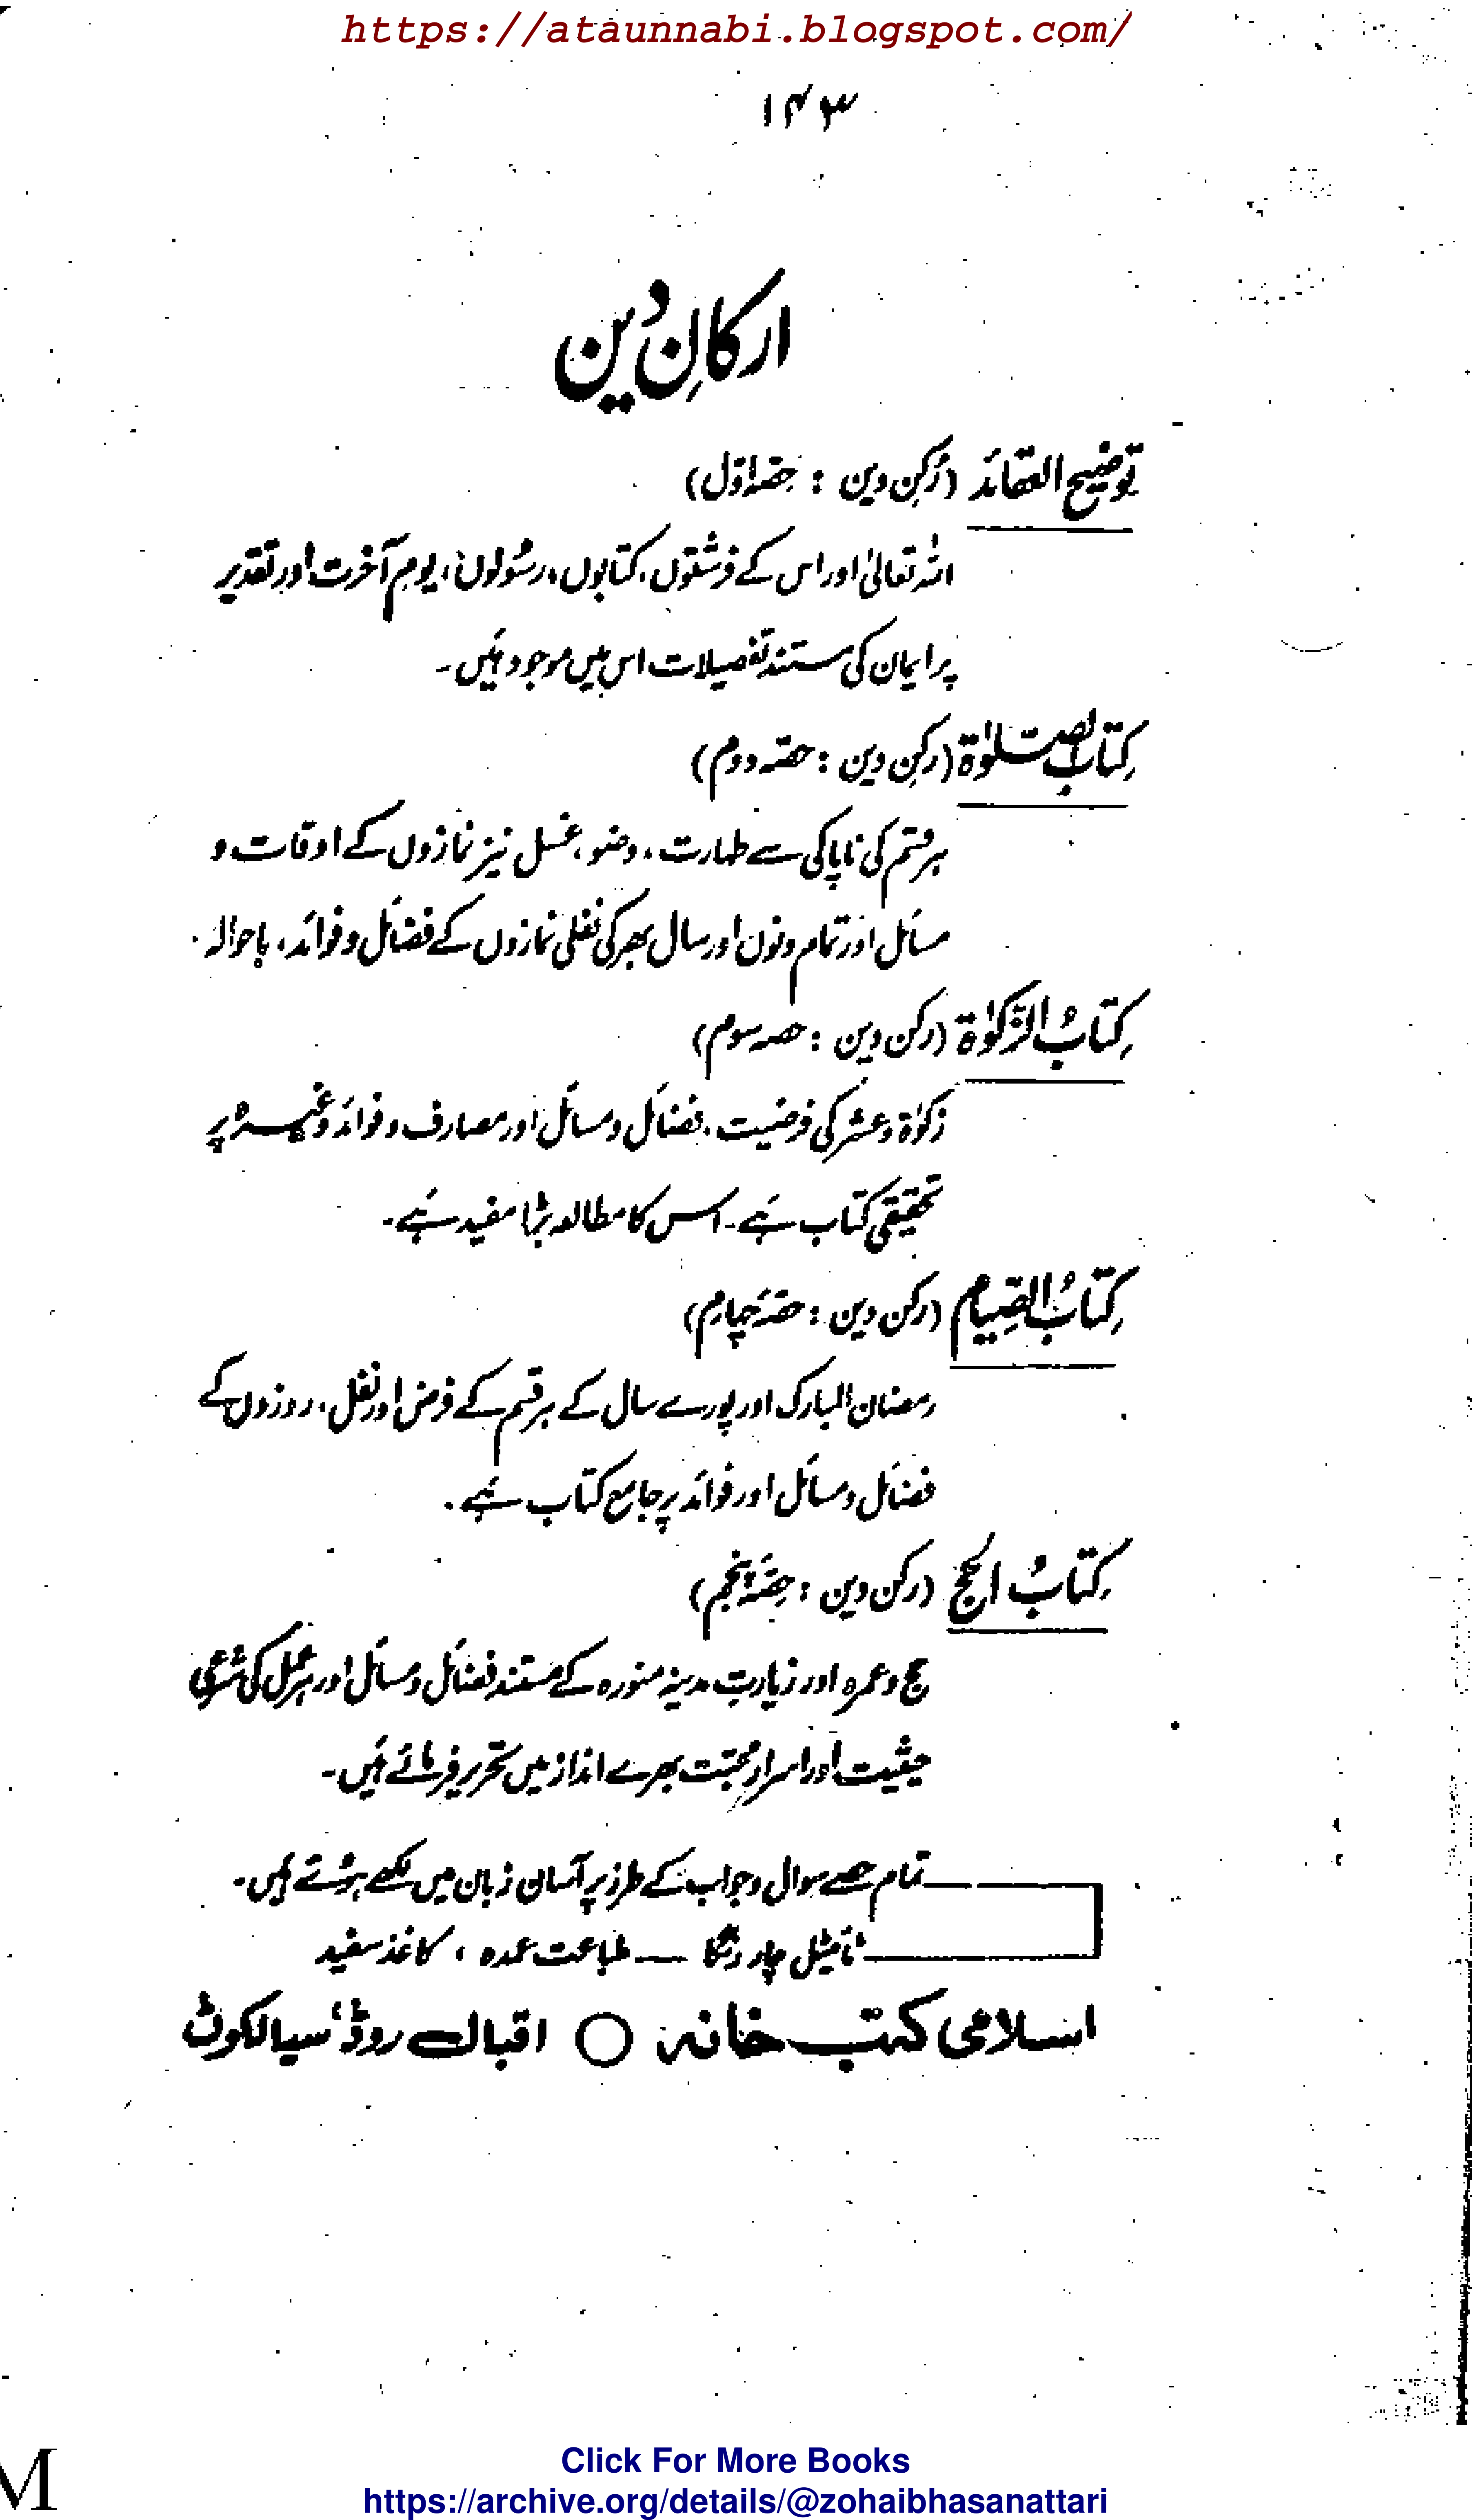 https://ataunnabi.blogspot.com/
۱۴۳
ارکانِ دین
توضیح العقائد (رُکنِ دین : حصّہ اوّل)
اللہ تعالیٰ اور اس کے فرشتوں، کتابوں، رسُولوں، یومِ آخرت اور تقدیر
پر ایمان کی مستند تفصیلات اس میں موجود ہیَں۔
کِتابُ الصلوٰۃ (رکنِ دین : حصّہ دوم)
ہر قسم کی ناپاکی سے طہارت، وضو، غسل نیز نمازوں کے اوقات و
مسائل اور تمام دنوں اور سال بھر کی نفلی نمازوں کے فضائل و فوائد، باحوالہ۔
کِتابُ الزّکوٰۃ (رکن دین : حصہ سوم)
زکوٰۃ و عشر کی فرضیت، فضائل و مسائل اور مصارف و فوائد وغیرہ پر
تحقیقی کتاب ہَے۔ اس کا مطالعہ بڑا مفید ہَے۔
کِتابُ الصِّیام (رکن دین : حصّہ چہارم)
رمضان المبارک اور پورے سال کے ہر قسم کے فرض اور نفل، روزوں کے
فضائل و مسائل اور فوائد پر جامع کتاب ہَے۔
کِتابُ الحج (رکن دین : حِصّہ پنجم)
حج و عمرہ اور زیارتِ مدینہ منورہ کے مستند فضائل و مسائل اور ہر عمل کی شرعی
حیثیت اور اسرار محبّت بھرے انداز میں تحریر فرمائے ہیَں۔
تمام حصے سوال و جواب کے طرز پر آسان زبان میں لکھے ہوئے ہیں۔
ٹائیٹل چار رنگا — طباعت عمدہ ، کاغذ سفید
اسلامی کتب خانہ ○ اقبال روڈ، سیالکوٹ
M
Click For More Books
https://archive.org/details/@zohaibhasanattari